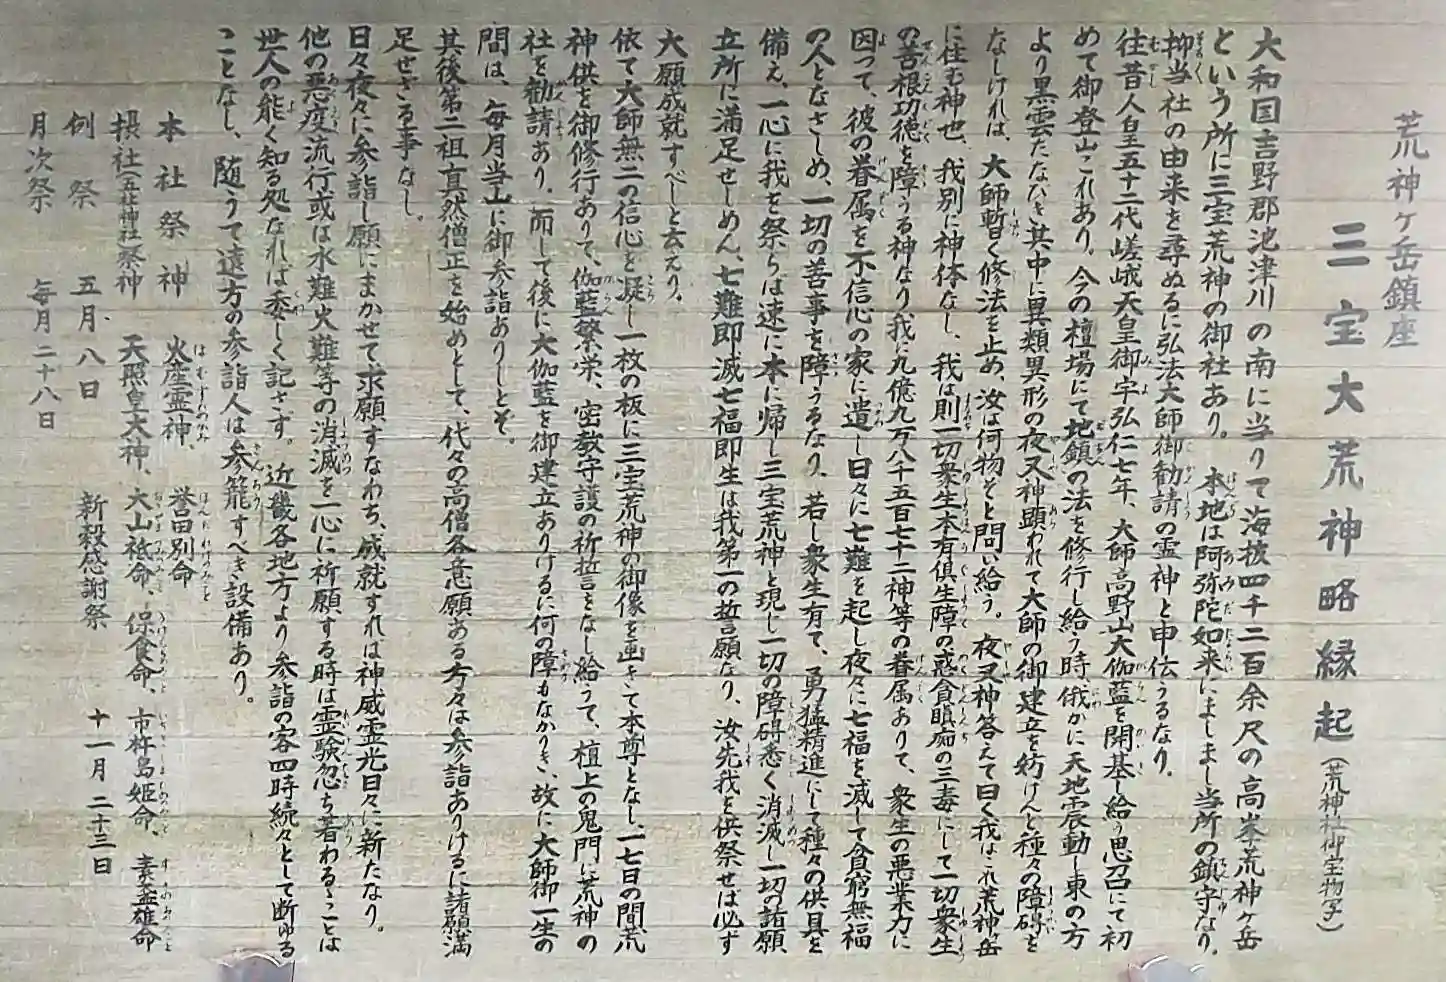 荒神ヶ岳鎮座
三宝大荒神略縁起(荒神社御宝物写)
大和国吉野郡池津川の南に当りて海抜四千二百余尺の高峯荒神ヶ岳
という所に三宝荒神の御社あり。本地は阿弥陀如来にましまし当所の鎮守なり。
抑当社の由来を尋ぬるに弘法大師御勧請の霊神と申伝うるなり。
往昔人皇五十二代嵯峨天皇御宇弘仁七年、大師高野山大伽藍を開基し給う思召にて初
めて御登山これあり。今の檀場にて地鎮の法を修行し給う時俄かに天地震動し東の方
より黒雲たなびき其中に異類異形の夜叉神顕われて大師の御建立を妨げんと種々の障碍を
なしければ、大師暫く修法を止め、汝は何物ぞと問い給う。夜叉神答えて曰く我はこれ荒神岳
に住む神也、我別に神体なし、我は則一切衆生本有倶生障の惑貪瞋痴の三毒にして一切衆生
の善根功徳を障うる神なり我に九億九万八千五百七十二神等の眷属ありて、衆生の悪業力に
因つて、彼の眷属を不信心の家に遣し日々に七難を起し夜々に七福を滅して貧窮無福
の人となさしめ、一切の善事を障うるなり、若し衆生有て、勇猛精進にして種々の供具を
備え、一心に我を祭らば速に本に帰し三宝荒神と現じ一切の障碍悉く消滅し一切の諸願
立所に満足せしめん、七難即滅七福即生は我第一の誓願なり、汝先我を供祭せば必ず
大願成就すべしと云えり。
依て大師無二の信心を凝し一枚の板に三宝荒神の御像を画きて本尊となし、一七日の間荒
神供を御修行ありて、伽藍繁栄、密教守護の祈誓をなし給うて、檀上の鬼門に荒神の
社を勧請あり、而して後に大伽藍を御建立ありけるに何の障もなかりき、故に大師御一生の
間は、毎月当山に御参詣ありしとぞ。
其後第二祖真然僧正を始めとして、代々の高僧各意願ある方々は参詣ありけるに諸願満
足せざる事なし。
日々夜々に参詣し願にまかせて求願すなわち、成就すれば神威霊光日々に新たなり。
他の悪疫流行或は水難火難等の消滅を一心に祈願する時は霊験忽ち著わるゝことは
世人の能く知る処なれば委しく記さず。近畿各地方より参詣の客四時続々として断ゆる
ことなし、随うて遠方の参詣人は参籠すべき設備あり。
本社祭神 火産霊神、誉田別命
摂社(五社神社)祭神 天照皇大神、大山祇命、保食命、市杵島姫命、素盞雄命
例祭 五月八日 新穀感謝祭 十一月二十三日
月次祭 毎月二十八日